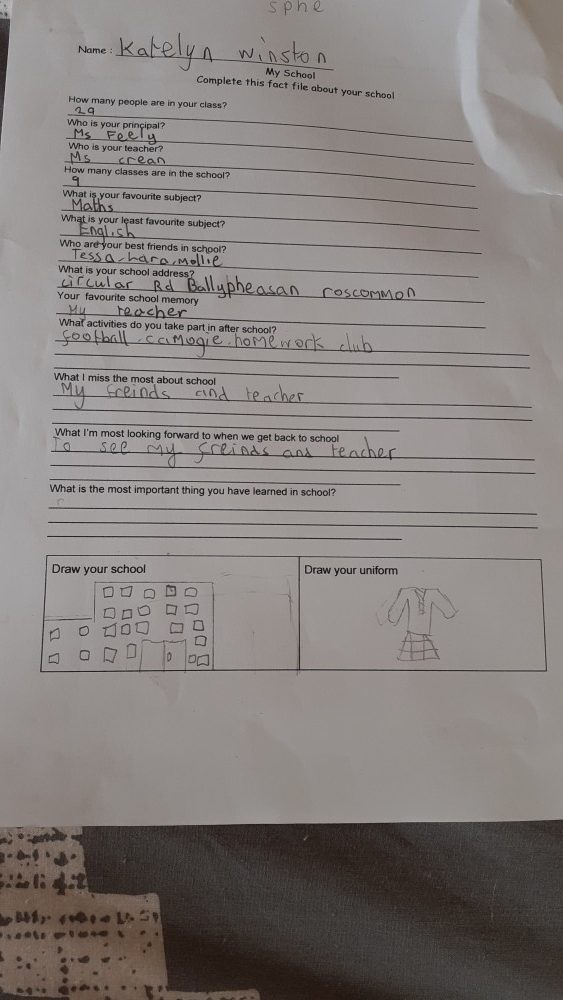 sphe
Name : Katelyn Winston
My School
Complete this fact file about your school
How many people are in your class?
29
Who is your principal?
Ms Feely
Who is your teacher?
Ms crean
How many classes are in the school?
9
What is your favourite subject?
Maths
What is your least favourite subject?
English
Who are your best friends in school?
Tessa, Lara, Mollie
What is your school address?
circular Rd Ballypheasan roscommon
Your favourite school memory
My teacher
What activities do you take part in after school?
football, camogie, homework club
What I miss the most about school
My freinds and teacher
What I'm most looking forward to when we get back to school
To see my freinds and teacher
What is the most important thing you have learned in school?
Draw your school
Draw your uniform